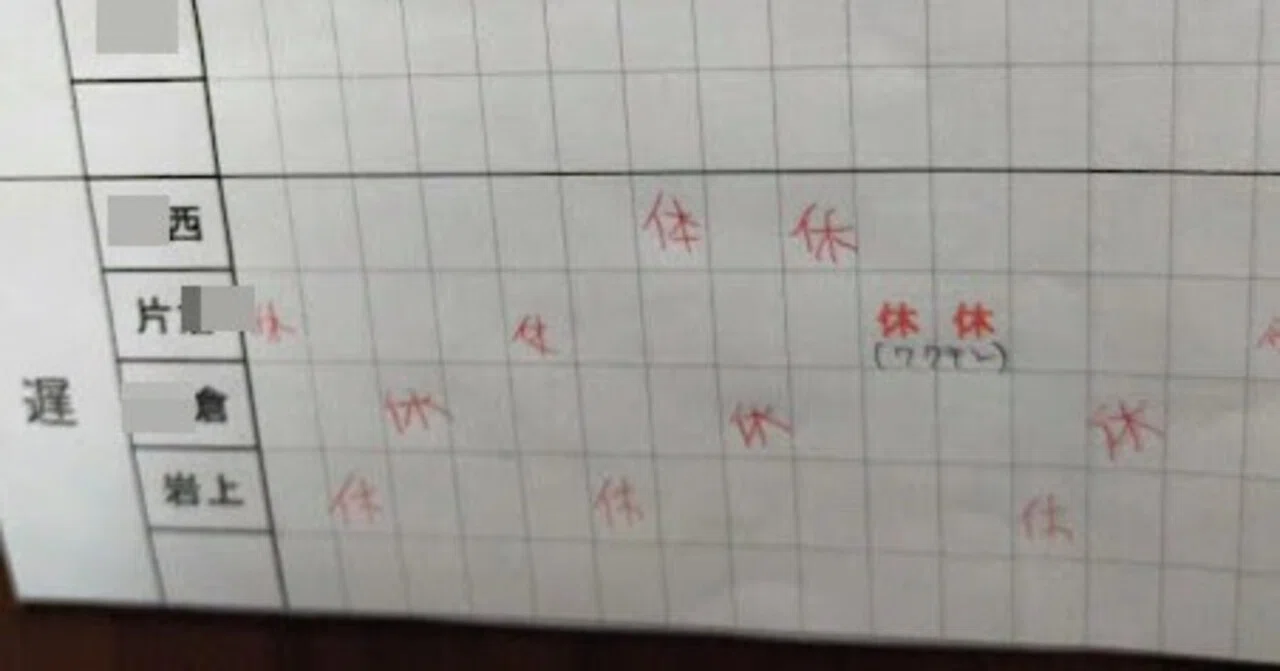 西 休 休
片 休 休 休 休
(ワクチン)
遅
倉 休 休 休
岩上 休 休 休